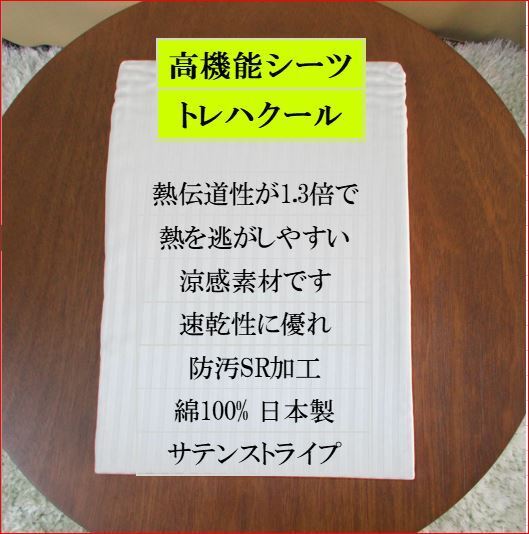 高機能シーツ
トレハクール
熱伝道性が1.3倍で
熱を逃がしやすい
涼感素材です
速乾性に優れ
防汚SR加工
綿100% 日本製
サテンストライプ